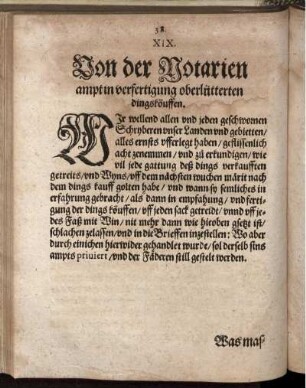 38.
XIX.
Von der Notarien
ampt in verfertigung oberlütterten
dingsköuffen.
WJe wellend allen vnd jeden geschwornen
Schryberen vnser Landen vnd gebietten/
alles ernsts vfferlegt haben/ geflissenlich
acht zenemmen/ vnd zů erkundigen/ wie
vil jede gattung deß dings verkaufften
getreits/ vnd Wyns/ vff dem nächsten wuchen märit nach
dem dings kauff golten habe/ vnd wann sy semliches in
erfahrung gebracht/ als dann in empfahung/ vnd ferti-
gung der dings köuffen/ vff jeden sack getreidt/ vnnd vff je-
des Faß mit Win/ nit mehr dann wie hieoben gsetzt ist/
schlachen zelassen/ vnd in die Brieffen inzestellen: Wo aber
durch einichen hierwider gehandlet wurde/ sol derselb sins
ampts priviert/ vnd der Fäderen still gestelt werden.
Was mas-